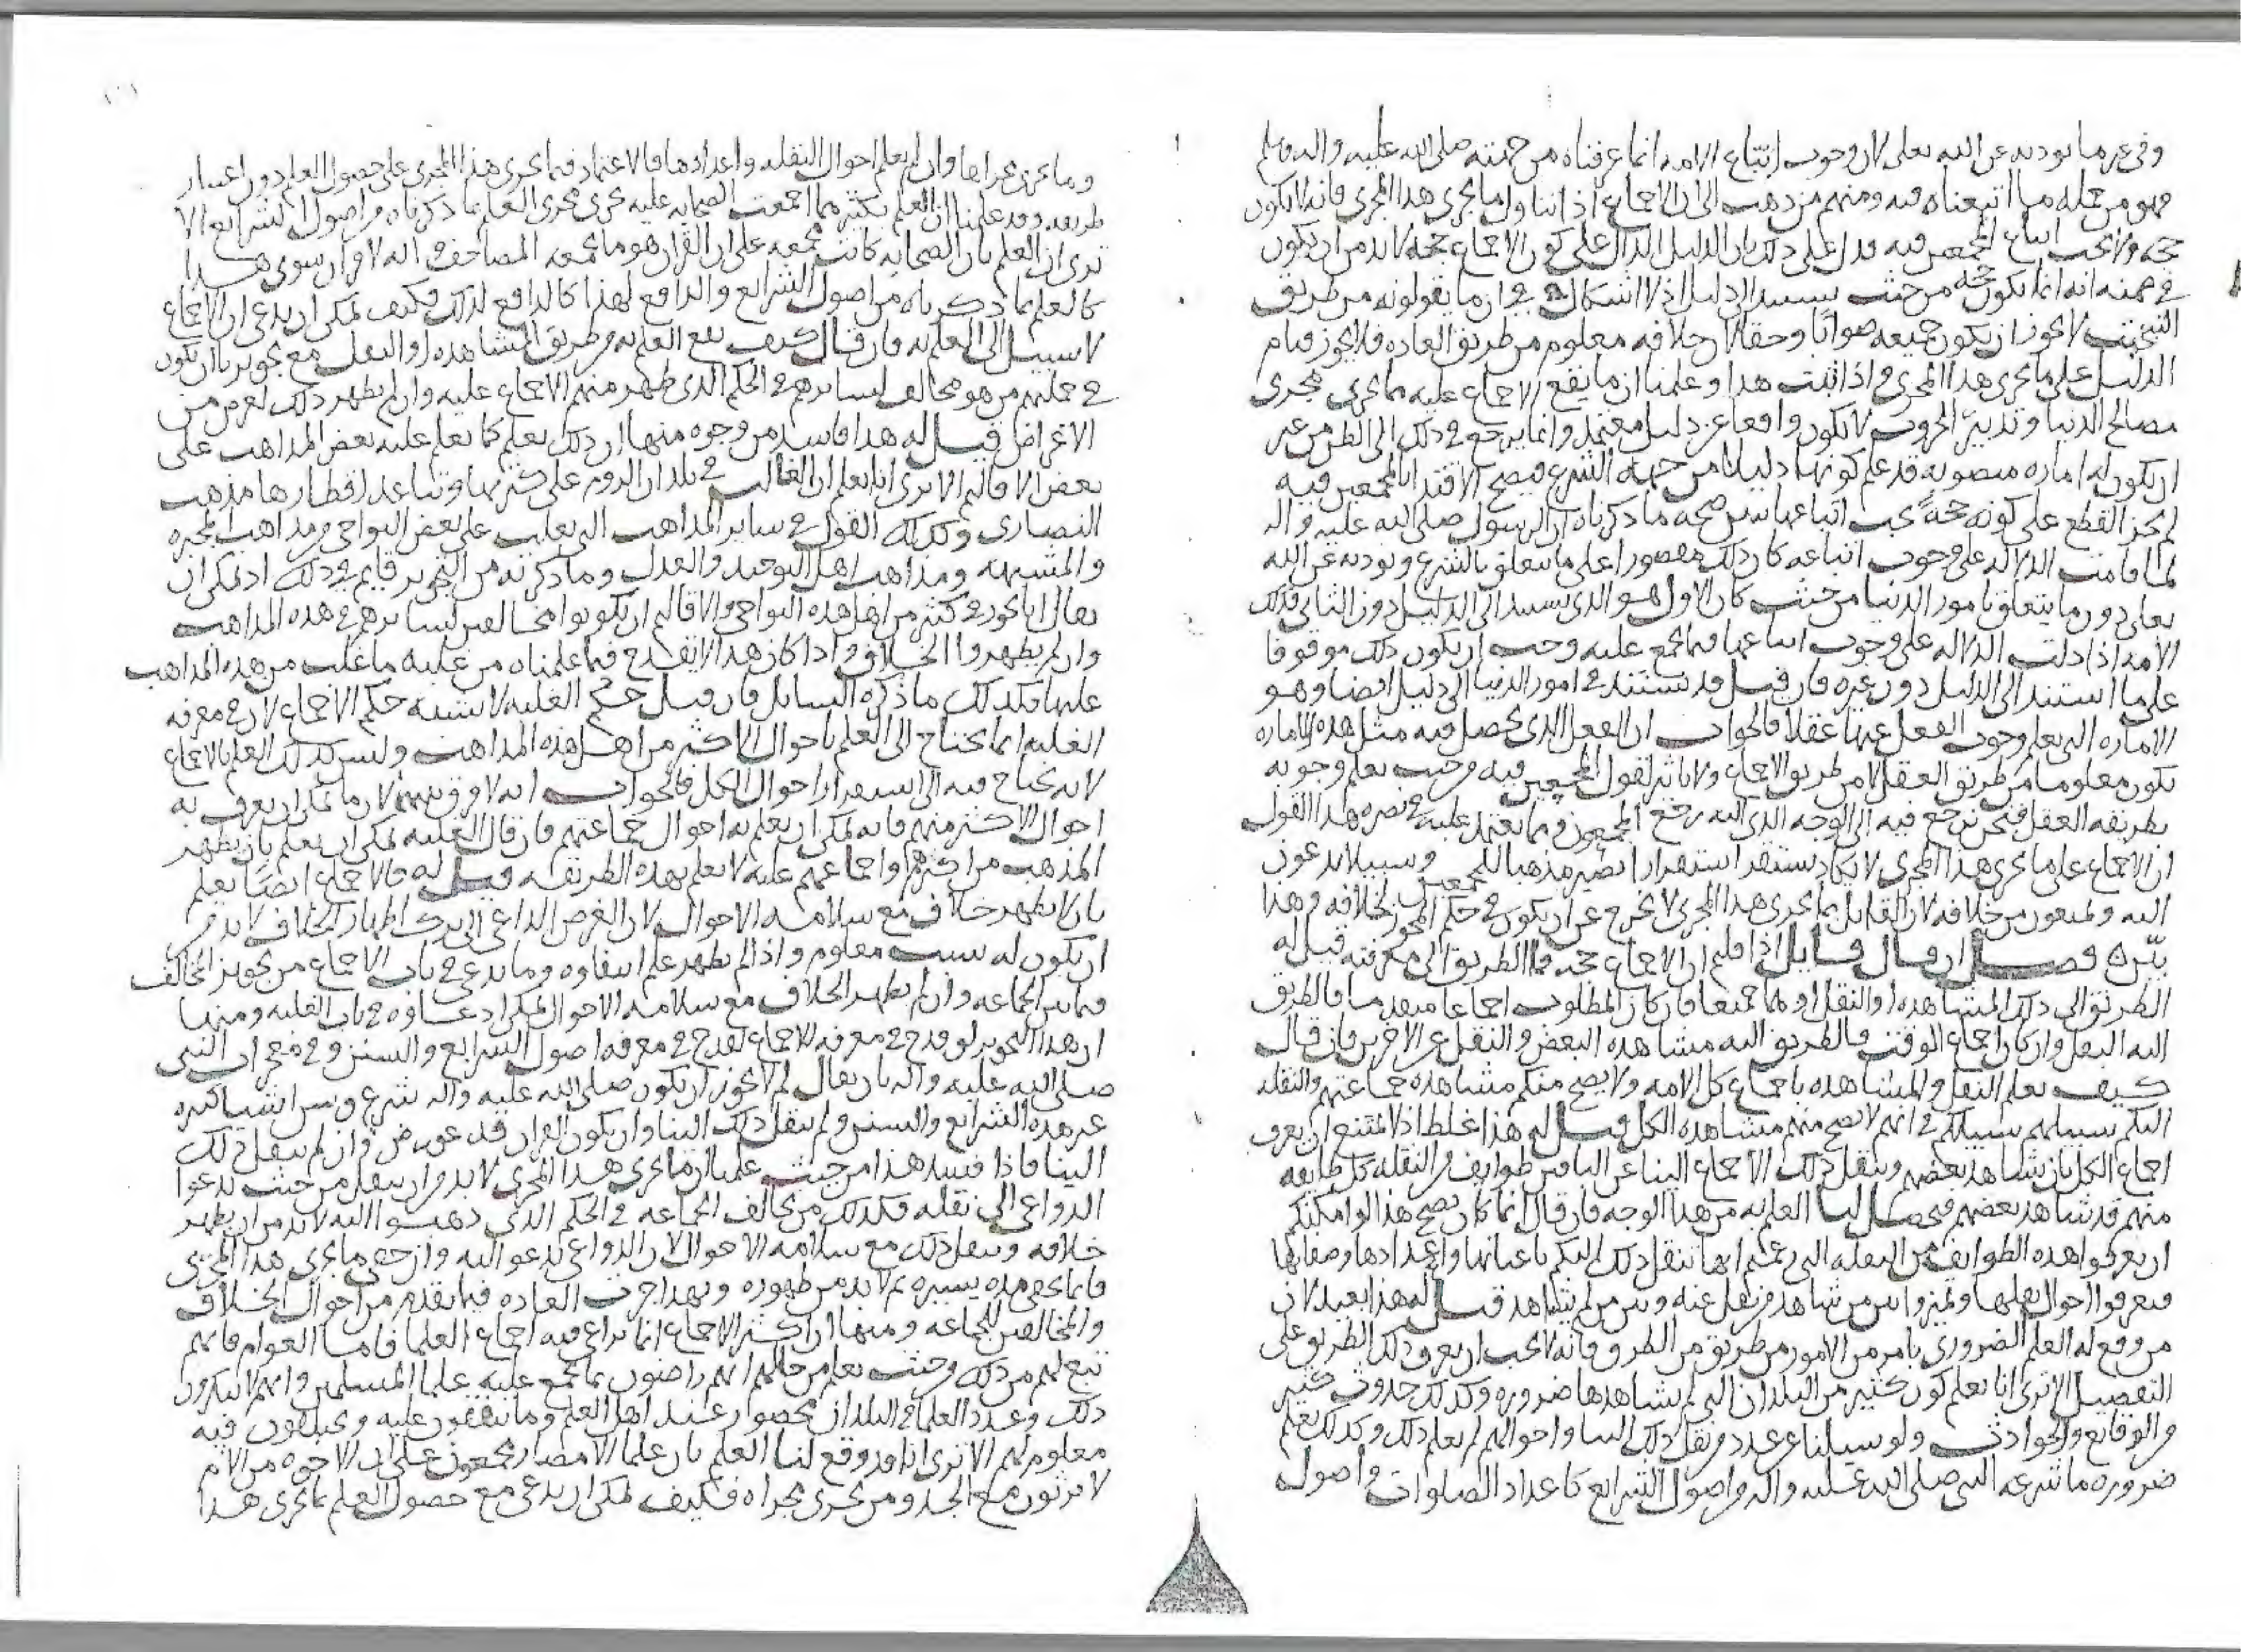 وفي غير ما يوديه عن الله تعلى لان وجوب اتباع الامه انما عرفناه من جهته صلى الله عليه واله وسلم
فهو من جمله ما اتبعناه فيه ومنهم من ذهب الى ان الاجماع اذا تناول ما يجري هذا المجرى فانه لا يكون
حجه ولا يجب اتباع المجمعين فيه يدل على ذلك بان الدليل الدال على كون الاجماع حجه لا بد من ان يكون
في ضمنه انه انما يكون حجه من حيث يستند الى دليل اذ لا اشكال في ان ما يقولونه من طريق
التبخيت لا يجوز ان يكون جميعه صوابا وحقا لان خلافه معلوم من طريق العاده فلا يجوز قيام
الدليل على ما يجري هذا المجرى واذا ثبت هذا وعلمنا ان ما يقع الاجماع عليه مما يجري مجرى
مصالح الدنيا وتدبير الحروب لا يكون واقعا عن دليل معتمد وانما يرجع في ذلك الى الظن من غير
ان يكون له اماره منصوبه قد علم كونها دليلا من جهه الشرع فيصح الاقتدا بالمجمعين فيه
لم يجز القطع على كونه حجة يجب اتباعها يبين صحه ما ذكرناه ان الرسول صلى الله عليه واله
لما قامت الدلاله على وجوب اتباعه كان ذلك مقصورا على ما يتعلق بالشرع ويوديه عن الله
تعلى دون ما يتعلق بامور الدنيا من حيث كان الاول هو الذي يستند الى الدليل دون الثاني فكذلك
الامه اذا دلت الدلاله على وجوب اتباعها فيما تجمع عليه وجب ان يكون ذلك موقوفا
على ما استند الى الدليل دون غيره فان قيل قد تستند في امور الدنيا الى دليل ايضا وهو
الاماره التي يعلم وجوب الفعل عندها عقلا فالجواب ان الفعل الذي يحصل فيه مثل هذه الاماره
يكون معلوما من طريق العقل لا من طريق الاجماع ولا تاثير لقول المجمعين فيه وحيث يعلم وجوبه
بطريقه العقل فنحن نرجع فيه الى الوجه الذي اليه رجع المجمعون ومما يعتمد عليه في نصره هذا القول
ان الاجماع على ما يجري هذا المجرى لا يكاد يستقر استقرارا يصير مذهبا للمجمعين وسبيلا يدعون
اليه ويمنعون من خلافه لان القايل بما يجري هذا المجرى لا يخرج عن ان يكون في حكم المجوز لخلافه وهذا
بيّن فصل ان قال قايل اذا قلتم ان الاجماع حجه فما الطريق الى معرفته قيل له
الطريق الى ذلك المشاهده او النقل او هما جميعا فان كان المطلوب اجماعا متقدما فالطريق
اليه النقل وان كان اجماع الوقت فالطريق اليه مشاهده البعض والنقل عن الاخرين فان قال
كيف يعلم النقل والمشاهده باجماع كل الامه ولا يصح منكم مشاهده جماعتهم والنقله
اليكم سبيلهم سبيلكم في انهم لا يصح منهم مشاهده الكل قيل له هذا غلط اذ لا يمتنع ان يعرف
اجماع الكل بان نشاهد بعضهم وينقل ذلك الاجماع الينا عن الباقين طوايف من النقله كل طايفه
منهم قد شاهد بعضهم فيحصل لنا العلم به من هذا الوجه فان قال انما كان يصح هذا لو امكنكم
ان تعرفوا هذه الطوايف من النقله التي زعمتم انها تنقل ذلك اليكم باعيانها واعدادها وصفاتها
فتعرفوا احوال نقلها وتميزوا بين من شاهد من نقل عنه وبين من لم يشاهد قيل له هذا بعيد لان
من وقع له العلم الضروري بامر من الامور من طريق من الطرق فانه لا يجب ان يعرف ذلك الطريق على
التفصيل الا ترى انا نعلم كون كثير من البلدان التي لم نشاهدها ضروره وكذلك حدوث كثير
من الوقايع والحوادث ولو سيلنا عن عدد من نقل ذلك الينا واحوالهم لم نعلم ذلك وكذلك نعلم
ضروره ما شرعه النبي صلى الله عليه واله من اصول الشرايع كاعداد الصلوات واصول
وما يجري مجراها وان لم نعلم احوال النقله واعدادها فالاعتماد فيما يجري هذا المجرى على حصول العلم دون اعتبار
طريقه وقد علمنا ان العلم بكثير مما اجمعت الصحابه عليه يجري مجرى العلم بما ذكرناه من اصول الشرايع الا
ترى ان العلم بان الصحابه كانت مجمعه على ان القران هو ما يجمعه المصاحف وانه لا قران سوى هذا
كالعلم بما ذكرناه من اصول الشرايع والدافع لهذا كالدافع لذلك فكيف يمكن ان يدعى ان الاجماع
لا سبيل الى العلم به فان قال كيف يقع العلم به من طريق المشاهده او النقل مع تجويز بان يكون
في جملتهم من هو مخالف لسايرهم في الحكم الذي ظهر منهم الاجماع عليه وان لم يظهر ذلك لغرض من
الاغراض قيل له هذا فاسد من وجوه منها ان ذلك يعلم كما يعلم غلبه بعض المذاهب على
بعض الاقاليم الا ترى انا نعلم ان الغالب في بلدان الروم على كثرتها وتباعد اقطارها مذهب
النصارى وكذلك القول في ساير المذاهب التي تغلب على بعض النواحي من مذاهب المجبره
والمشبهه ومذاهب اهل التوحيد والعدل وما ذكرته من التجويز قايم في ذلك اذ يمكن ان
يقال انا نجوز في كثير من اهل هذه النواحي والاقاليم ان يكونوا مخالفين لسايرهم في هذه المذاهب
وان لم يظهروا الخلاف واذا كان هذا لا يقدح فيما علمناه من غلبه ما غلب من هذه المذاهب
عليها فكذلك ما ذكره السايل فان قيل حكم الغلبه لا يشبه حكم الاجماع لان في معرفه
الغلبه انما يحتاج الى العلم باحوال الاكثر من اهل هذه المذاهب وليس كذلك العلم بالاجماع
لانه يحتاج فيه الى استقرار احوال الكل فالجواب انه لا فرق بينهما لان ما يمكن ان يعرف به
احوال الاكثر منهم فانه يمكن ان يعلم به احوال جماعتهم فان قال الغلبه يمكن ان يعلم بان يظهر
المذهب من اكثرهم واجماعهم عليه لا يعلم بهذه الطريقه قيل له فالاجماع ايضا يعلم
بان لا يظهر خلاف مع سلامه الاحوال لان الغرض الداعي الى ترك اظهار الخلاف لا بد من
ان يكون له سبب معلوم واذا لم يظهر علم انتفاوه وما يدعى في باب الاجماع من تجويز المخالف
فيما بين الجماعه وان لم يظهر الخلاف مع سلامه الاحوال يمكن ادعاوه في باب الغلبه ومنها
ان هذا التجويز لو قدح في معرفه الاجماع لقدح في معرفه اصول الشرايع والسنن وفي معجزات النبي
صلى الله عليه واله بان يقال لم لا يجوز ان يكون صلى الله عليه واله شرع وسن اشيا كثيره
غير هذه الشرايع والسنن ولم ينقل ذلك الينا وان يكون القران قد عورض وان لم ينقل ذلك
الينا فاذا فسد هذا من حيث علمنا ان ما يجري هذا المجرى لا بد من ان ينقل من حيث تدعوا
الدواعي الى نقله فكذلك من يخالف الجماعه في الحكم الذي ذهبوا اليه لا بد من ان يظهر
خلافه وينقل ذلك مع سلامه الاحوال لان الدواعي تدعو اليه وان خفي ما يجري هذا المجرى
فانما يخفى مده يسيره ثم لا بد من ظهوره وبهذا جرت العاده فيما تقدم من احوال الخلاف
والمخالفين للجماعه ومنها ان اكثر الاجماع انما يراعى فيه اجماع العلما فاما العوام فانهم
تبع لهم من ذلك من حيث يعلم من حالهم انهم راضون بما يجمع عليه علما المسلمين وانهم لا ينكرون
ذلك وعدد العلما في البلدان محصور عند اهل العلم وما يتفقون عليه ويختلفون فيه
معلوم لهم الا ترى انا قد وقع لنا العلم بان علما الامصار مجمعون على ان الاخوه من الام
لا يرثون مع الجد ومن يجري مجراه فكيف يمكن ان يدعى مع حصول العلم بما يجري هذا